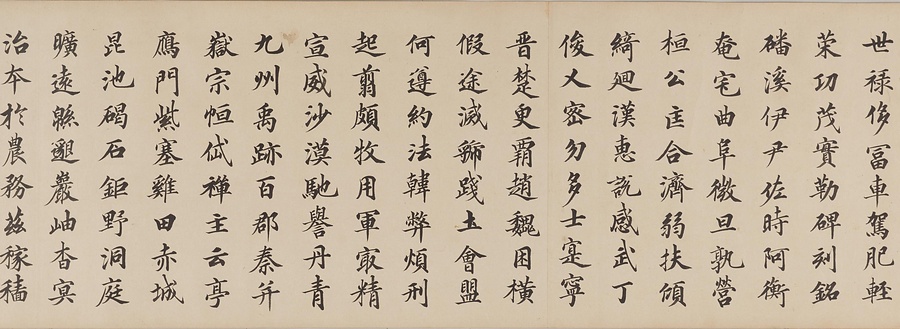 世禄侈冨車駕肥輕
策功茂實勒碑刻銘
磻溪伊尹佐時阿衡
奄宅曲阜微旦孰營
桓公匡合濟弱扶傾
綺迴漢惠說感武丁
俊乂密勿多士寔寧
晋楚更覇趙魏困橫
假途滅虢踐土會盟
何遵約法韓弊煩刑
起翦頗牧用軍㝡精
宣威沙漠馳譽丹青
九州禹跡百郡秦并
嶽宗恒岱禪主云亭
鴈門紫塞雞田赤城
昆池碣石鉅野洞庭
曠遠緜邈巖岫杳冥
治本於農務茲稼穡